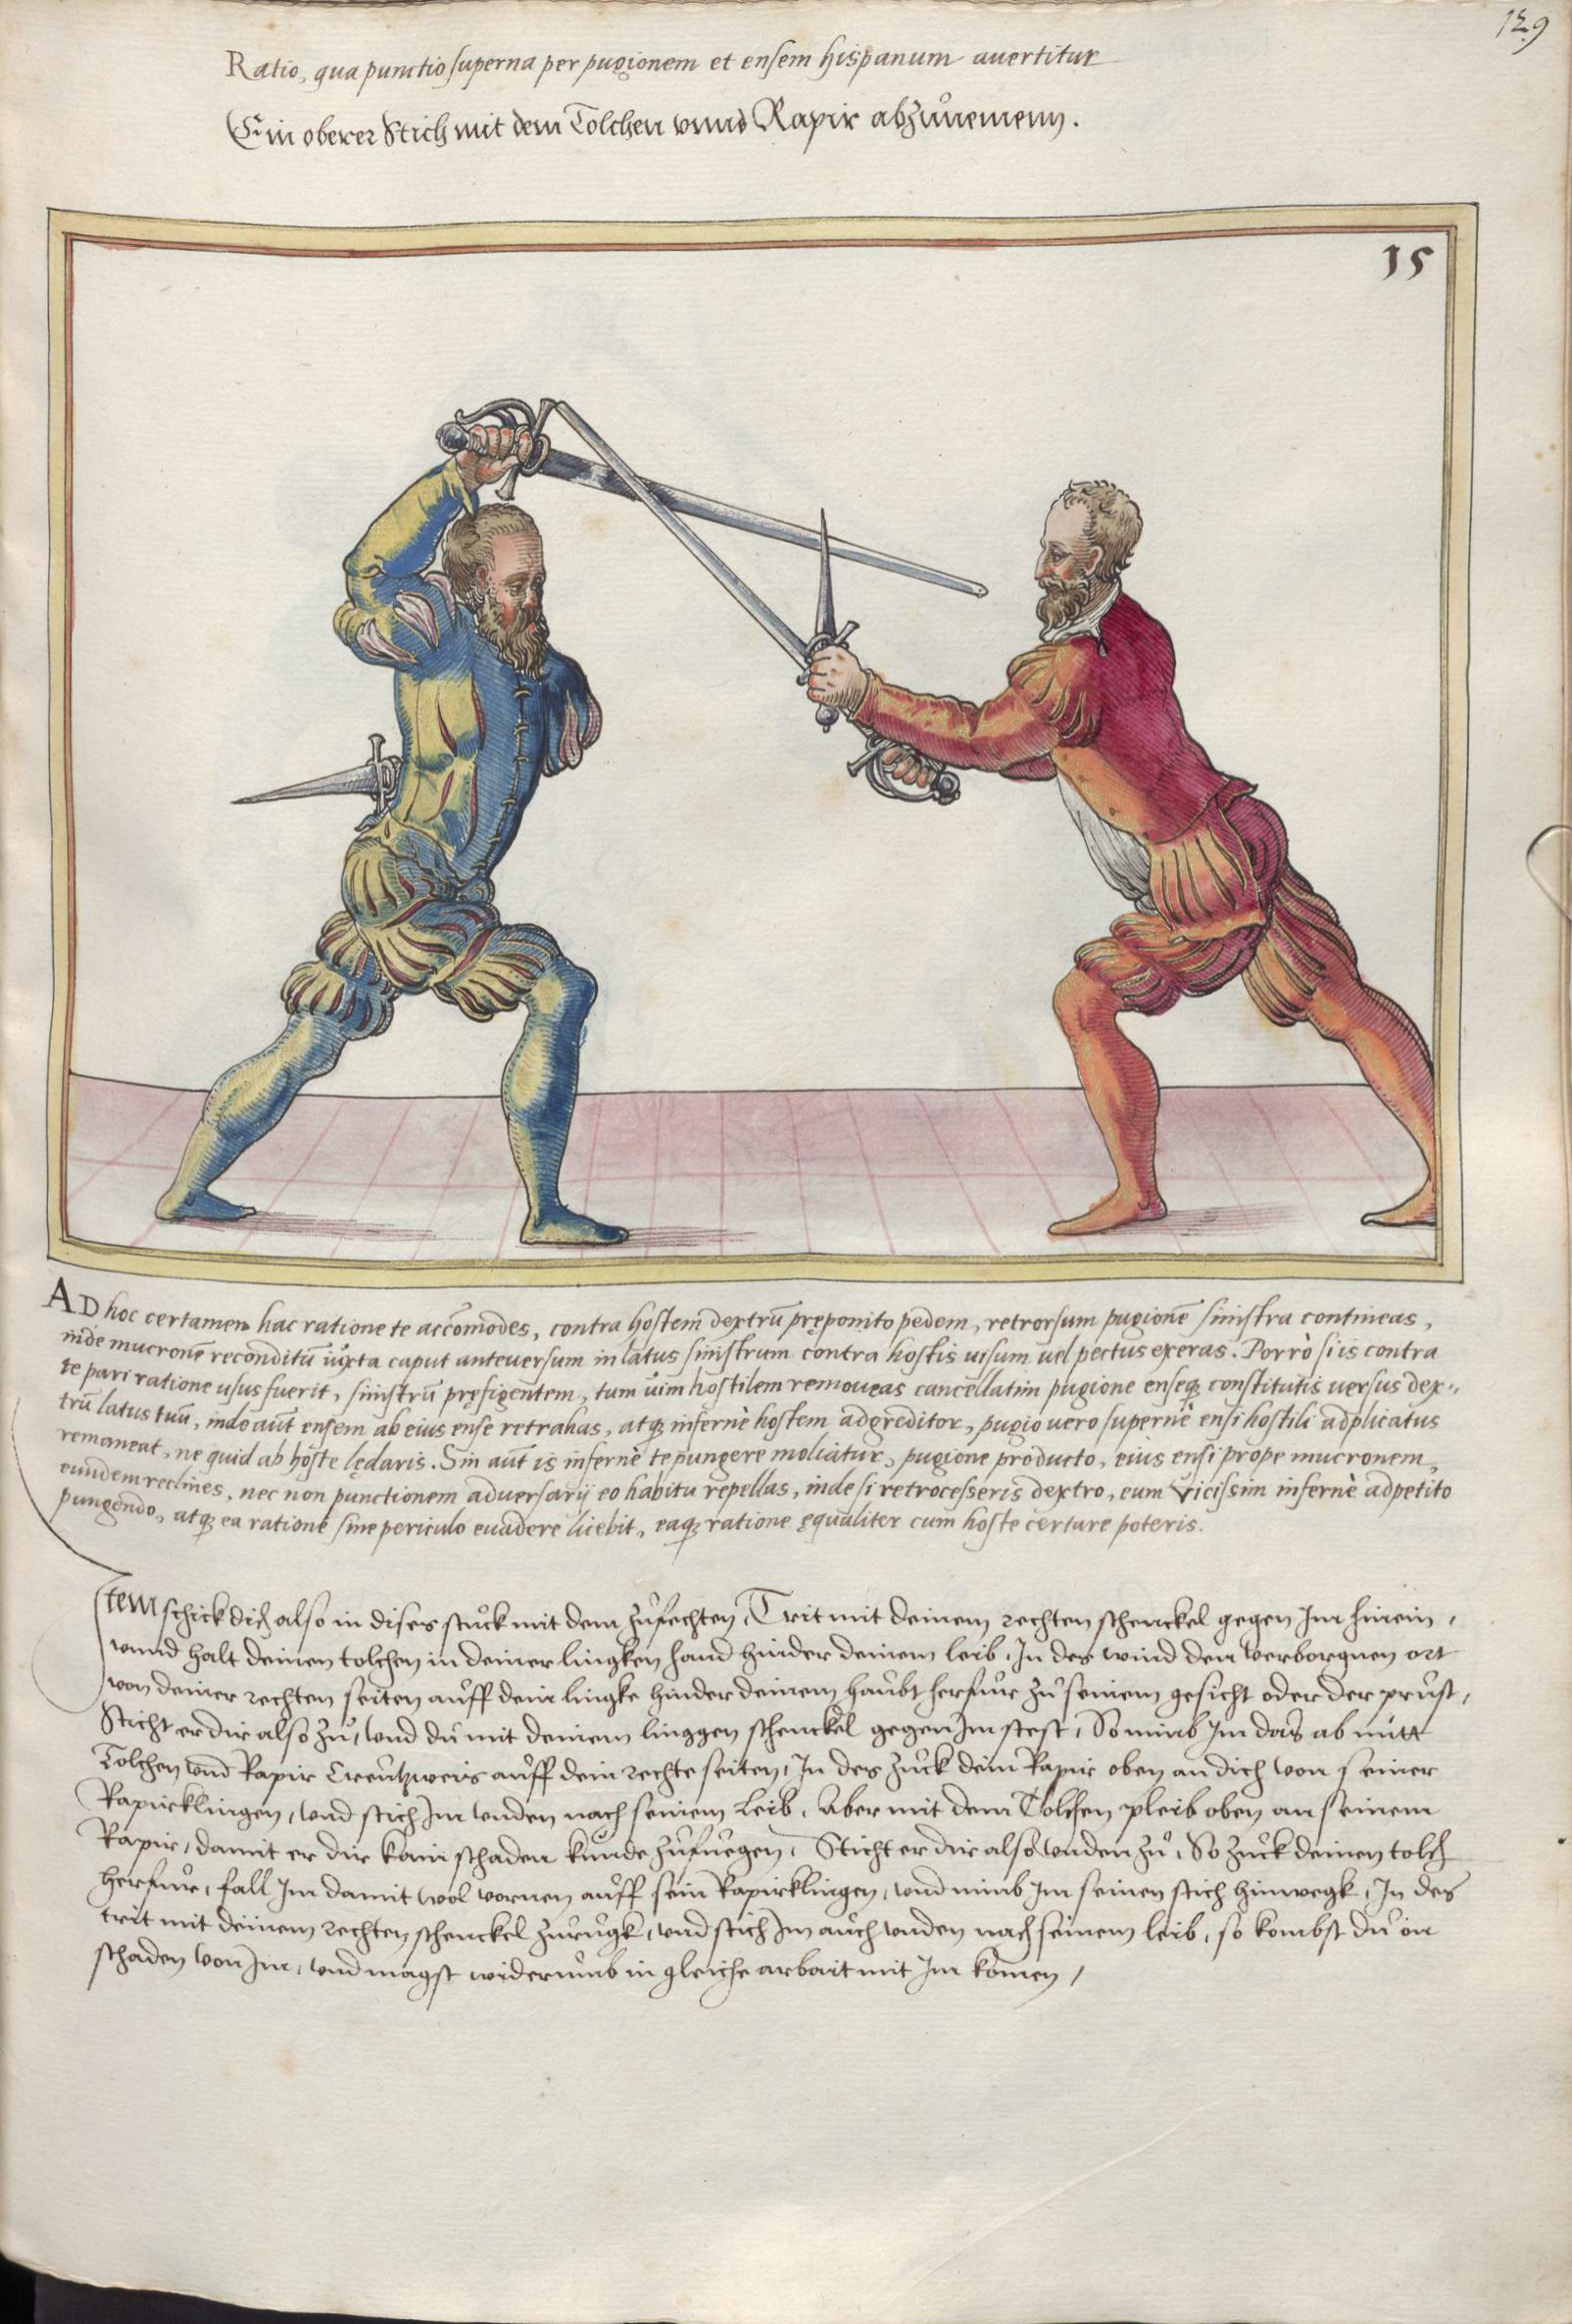 129
Ratio, qua punctio superna per pugionem et ensem hispanum auertitur
Ein oberer Stich mit dem Tolchen vnnd Rapir abzůnemenn.
15
AD hoc certamen hac ratione te accōmodes, contra hostem dextrū pręponito pedem, retrorsum pugionē sinistra contineas,
inde mucronē reconditū iuxta caput anteuersum in latus sinistrum contra hostis uisum uel pectus exeras. Porrò si is contra
te pari ratione usus fuerit, sinistrū pręfigentem, tum uim hostilem remoueas cancellatim pugione enseq; constitutis uersus dex-
trū latus tuū, indo aūt ensem ab eius ense retrahas, atq; infernè hostem adgreditor, pugio uero supernè ensi hostili adplicatus
remaneat, ne quid ab hoste lędaris. Sin aūt is infernè te pungere moliatur, pugione producto, eius ensi prope mucronem,
eundem reclines, nec non punctionem aduersarij eo habitu repellas, inde si retrocesseris dextro, eum vicissim infernè adpetito
pungendo, atq; ea ratione sine periculo euadere licebit, eaq; ratione ęqualiter cum hoste certare poteris.
Item schick dich also in dises stůck mit dem zůfechten, Trit mit deinem rechten schenckel gegen Im hinein,
vnnd halt deinen tolchen in deiner lingken hand hinder deinem leib, In des wind den verborgnen ort
von deiner rechten seiten aůff dein lingke hinder deinem haůbt herfůr zů seinem gesicht oder der průst,
Sticht er dir also zů, vnd dů mit deinem linggen schenckel gegen Im stest, So nimb Im das ab mitt
Tolchen vnd Rapir Creůtzweis aůff dein rechte seiten, In des zůck dein Rapir oben an dich von seiner
Rapirklingen, vnd stich Im vnden nach seinem Leib, Aber mit dem Tolchen pleib oben an seinem
Rapir, damit er dir kain schaden kůnde zůfůegen, Sticht er dir also vnden zů, So zůck deinen tolch
herfůr, fall Im damit wol vornen aůff sein Rapirklingen, vnd nimb Im seinen stich hinwegk, In des
trit mit deinem rechten schenckel zůrůgk, vnd stich Im aůch vnden nach seinem leib, so kombst dů on
schaden von Im, vnd magst widerůmb in gleiche arbait mit Im komen,